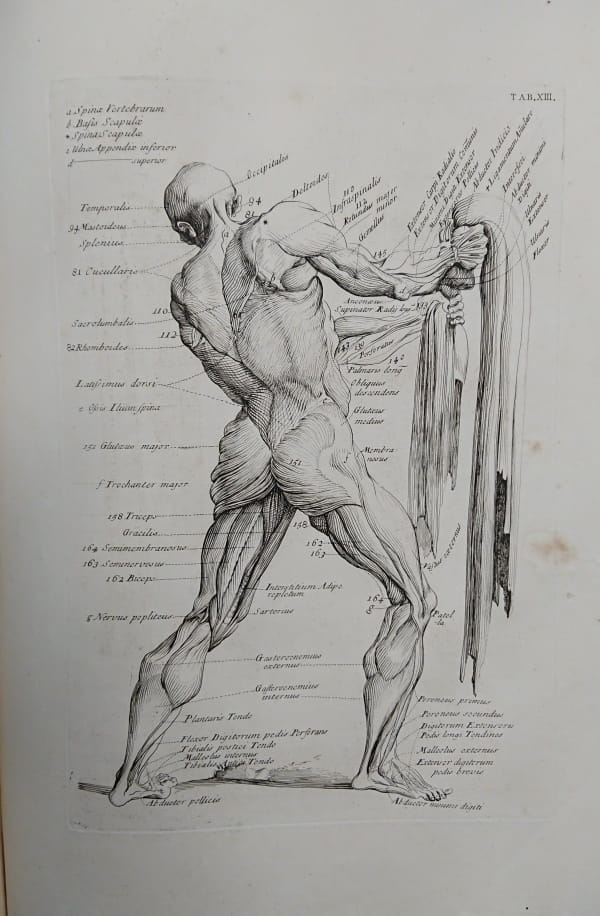 TAB.XIII.
a Spinæ Vertebrarum
b. Basis Scapulæ
* Spina Scapulæ
c Ulnæ Appendix inferior
d superior
Occipitalis
Temporalis
94
94 Mastoideus
81
Splenius
a
81 Cucullaris
Deltoides
Infraspinatis
112
Rotundus major
110
Gemellus
Extensor Carpi Radialis
Extensor Digitorum Communis
Abductor Indicis
* Ligamentum Annulare
Interossei
Abductor minimi
Digiti
Ulnaris
Extensor
Ulnaris
Flexor
145
d
110
Sacrolumbalis
112
82 Rhomboides
Anconæus
Supinator Radij
143
139
Perforatus
140
Palmaris long
Latissimus dorsi
Obliquus
descendens
e Ossis Ilium spina
Gluteus
medius
151 Glutæus major
151
f
Membra
nosus
f Trochanter major
158 Triceps
158
Gracilis
164 Semimembranosus
162
163
163 Seminervosus
162 Biceps
Interstitium Adipe
repletum
164
g
g Nervus popliteus
Sartorius
Patel
la
Gasterocnemius
externus
Gasterocnemius
internus
Plantaris Tendo
Peroneus primus
Peroneus secundus
Digitorum Extensoris
Pedis longi Tendines
Flexor Digitorum pedis Perforans
Tibialis postici Tendo
Malleolus internus
Tibialis Antici Tendo
Malleolus externus
Extensor digitorum
pedis brevis
Abductor pollicis
Abductor minimi digiti